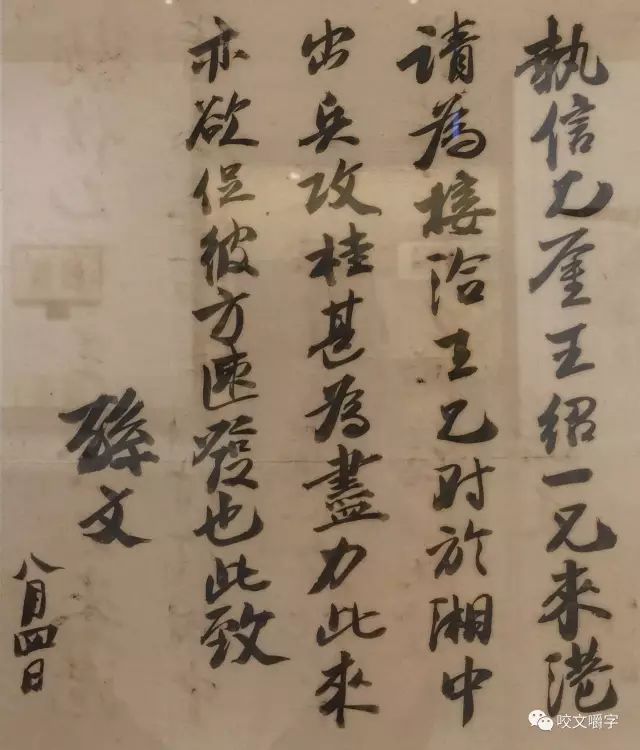 執信兄鋻王紹一兄來港
請為接洽王兄对於湘中
出兵攻桂甚為盡力此來
亦欲促彼方速發也此致
孫文
八月四日
咬文嚼字